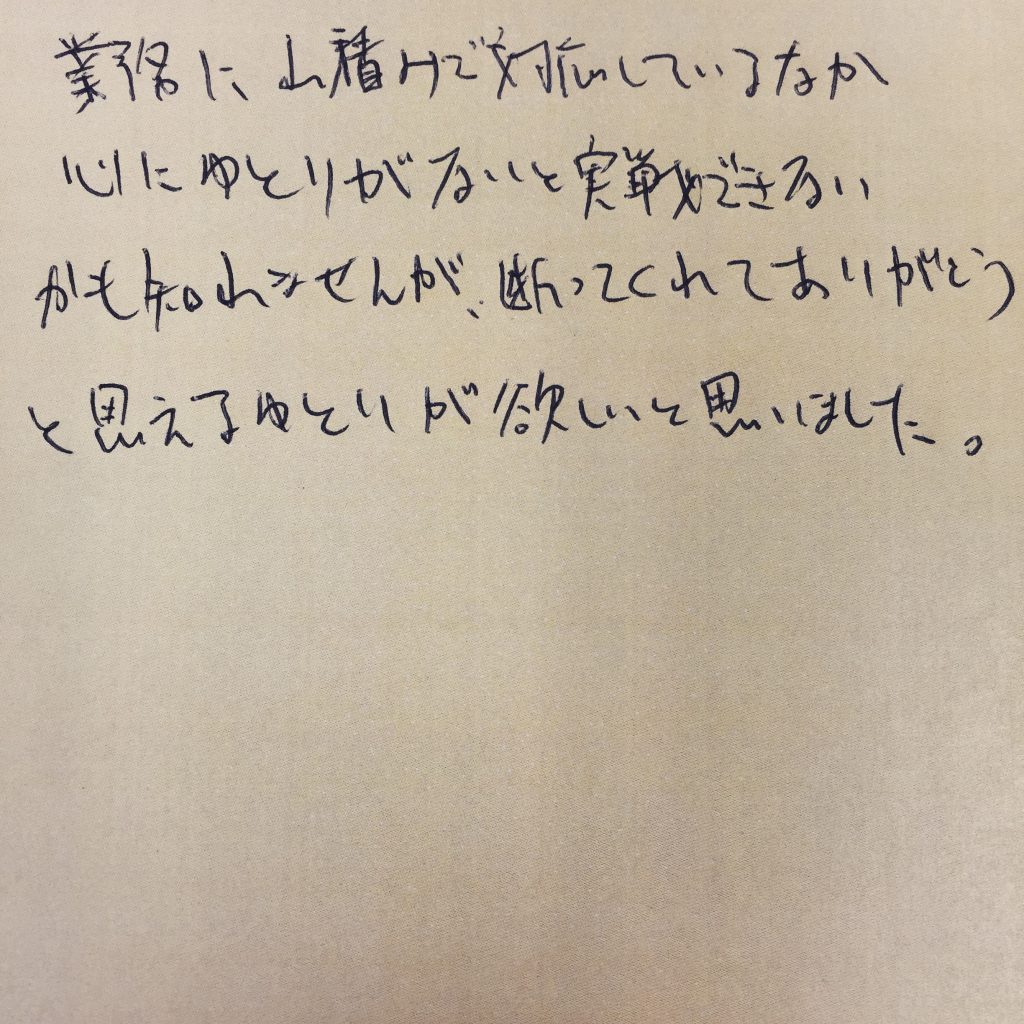 業務に山積みで対応しているなか
心にゆとりがないと実戦できない
かも知れませんが、断ってくれてありがとう
と思えるゆとりが欲しいと思いました。